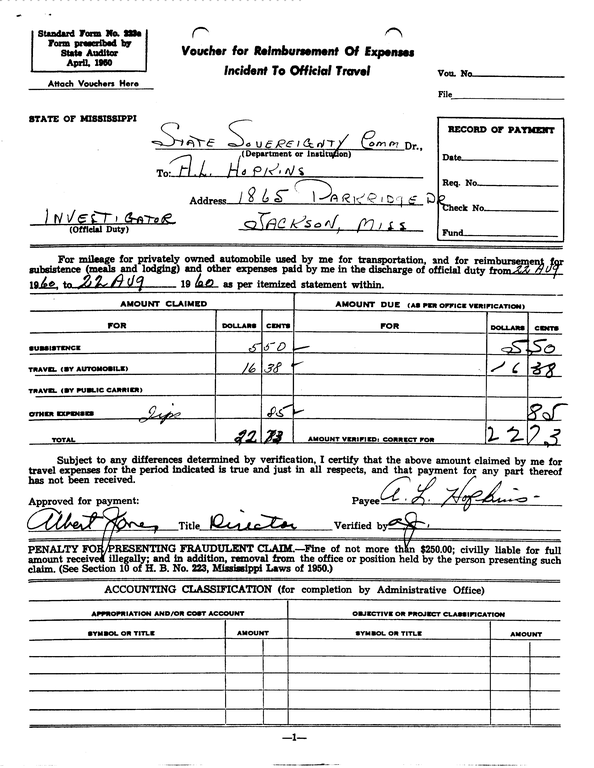 Standard Form No. 223a
Form prescribed by
State Auditor
April, 1950
Attach Vouchers Here
Voucher for Reimbursement Of Expenses
Incident To Official Travel
Vou. No.
File
STATE OF MISSISSIPPI
STATE SOVEREIGNTY COMM Dr.,
(Department or Institution)
To: A.L. HOPKINS
Address 1865 PARKRIDGE DR
INVESTIGATOR JACKSON, MISS
(Official Duty)
RECORD OF PAYMENT
Date
Req. No.
Check No.
Fund
For mileage for privately owned automobile used by me for transportation, and for reimbursement for
subsistence (meals and lodging) and other expenses paid by me in the discharge of official duty from 22 AUG
1960, to 22 AUG 1960 as per itemized statement within.
AMOUNT CLAIMED AMOUNT DUE (AS PER OFFICE VERIFICATION)
FOR DOLLARS CENTS FOR DOLLARS CENTS
SUBSISTENCE 5 50 5 50
TRAVEL (BY AUTOMOBILE) 16 38 16 38
TRAVEL (BY PUBLIC CARRIER)
OTHER EXPENSES Tips 85 85
TOTAL 22 73 AMOUNT VERIFIED: CORRECT FOR 22 73
Subject to any differences determined by verification, I certify that the above amount claimed by me for
travel expenses for the period indicated is true and just in all respects, and that payment for any part thereof
has not been received.
Approved for payment: Payee A. L. Hopkins
Albert Jones Title Director Verified by
PENALTY FOR PRESENTING FRAUDULENT CLAIM.—Fine of not more than $250.00; civilly liable for full
amount received illegally; and in addition, removal from the office or position held by the person presenting such
claim. (See Section 10 of H. B. No. 223, Mississippi Laws of 1950.)
ACCOUNTING CLASSIFICATION (for completion by Administrative Office)
APPROPRIATION AND/OR COST ACCOUNT OBJECTIVE OR PROJECT CLASSIFICATION
SYMBOL OR TITLE AMOUNT SYMBOL OR TITLE AMOUNT
—1—